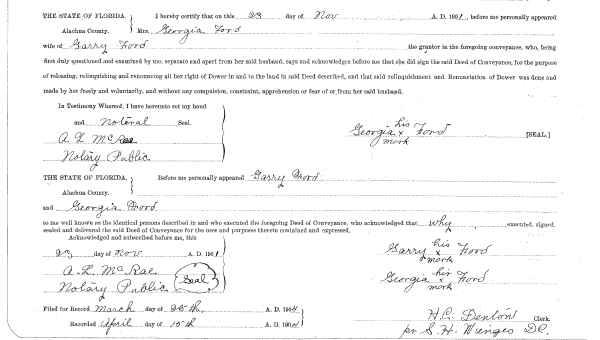 THE STATE OF FLORIDA. I hereby certify that on this 23 day of Nov A. D. 1901, before me personally appeared
Alachua County. Mrs. Georgia Ford
wife of Garry Ford the grantor in the foregoing conveyance, who, being
first duly questioned and examined by me, separate and apart from her said husband, says and acknowledges before me that she did sign the said Deed of Conveyance, for the purpose
of releasing, relinquishing and renouncing all her right of Dower in and to the land in said Deed described, and that said relinquishment and Renunciation of Dower was done and
made by her freely and voluntarily, and without any compulsion, constraint, apprehension or fear of or from her said husband.
In Testimony Whereof, I have hereunto set my hand
and Notarial Seal.
A. L. McRae
Notary Public.
his
Georgia x Ford [SEAL.]
mark
THE STATE OF FLORIDA. Before me personally appeared Garry Ford
Alachua County.
and Georgia Ford
to me well known as the identical persons described in and who executed the foregoing Deed of Conveyance, who acknowledged that why executed, signed,
sealed and delivered the said Deed of Conveyance for the uses and purposes therein contained and expressed.
Acknowledged and subscribed before me, this
23 day of Nov A. D. 1901
A. L. McRae
Notary Public Seal
his
Garry x Ford
mark
his
Georgia x Ford
mark
Filed for Record March 25th, A. D. 1904
Recorded April day of 15th A. D. 1904
H. C. Denton Clerk.
pr S. H. Wienges D.C.